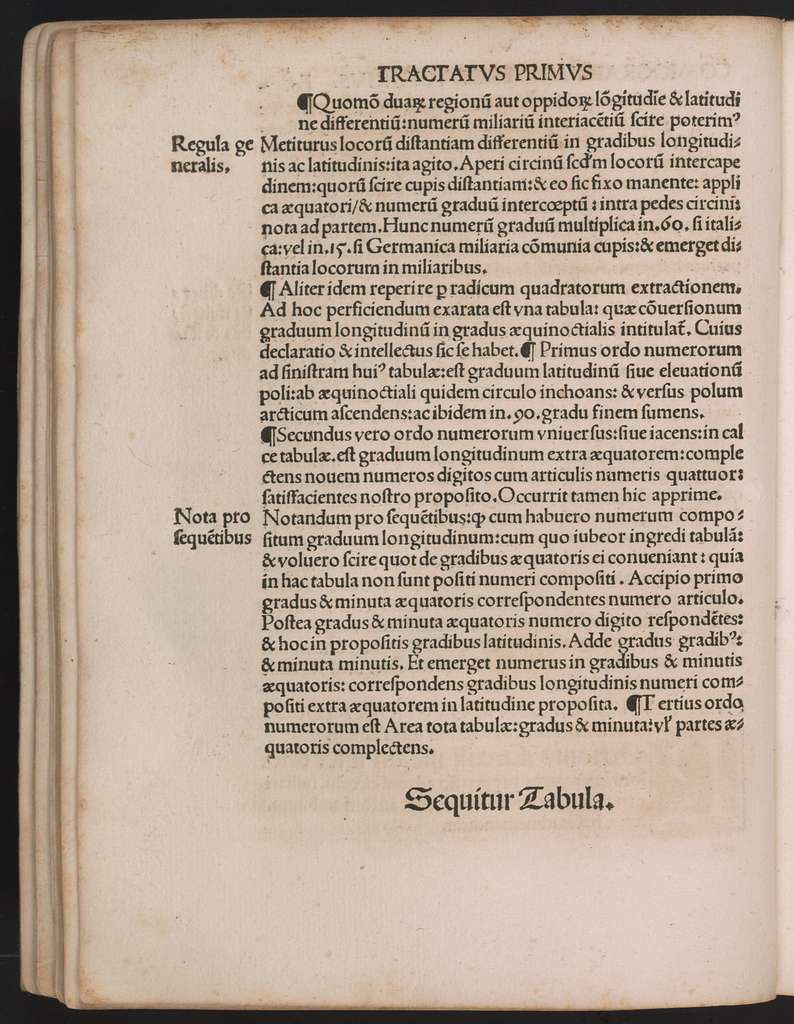 TRACTATVS PRIMVS
¶Quomõ duaꝝ regionũ aut oppidoꝝ lõgitudĩe & latitudi
ne differentiũ: numerũ miliariũ interiacẽtiũ ſcire poterimꝰ
Regula ge
neralis.
Metiturus locorũ diſtantiam differentiũ in gradibus longitudi⸗
nis ac latitudinis: ita agito. Aperi circinũ ſcd'm locorũ intercape
dinem: quorũ ſcire cupis diſtantiam: & eo ſic fixo manente: appli
ca æquatori/& numerũ graduũ intercœptũ : intra pedes circini:
nota ad partem. Hunc numerũ graduũ multiplica in .60. ſi itali⸗
ca: vel in .15. ſi Germanica miliaria cõmunia cupis: & emerget di⸗
ſtantia locorum in miliaribus.
¶ Aliter idem reperire ꝑ radicum quadratorum extractionem.
Ad hoc perficiendum exarata eſt vna tabula: quæ cõuerſionum
graduum longitudinũ in gradus æquinoctialis intitulat̃. Cuius
declaratio & intellectus ſic ſe habet. ¶ Primus ordo numerorum
ad ſiniſtram huiꝰ tabulæ: eſt graduum latitudinũ ſiue eleuationũ
poli: ab æquinoctiali quidem circulo inchoans: & verſus polum
arcticum aſcendens: ac ibidem in .90. gradu finem ſumens.
¶Secundus vero ordo numerorum vniuerſus: ſiue iacens: in cal
ce tabulæ. eſt graduum longitudinum extra æquatorem: comple
ctens nouem numeros digitos cum articulis numeris quattuor:
ſatiſfacientes noſtro propoſito. Occurrit tamen hic apprime.
Nota pro
ſequẽtibus
Notandum pro ſequẽtibus: ꝙ cum habuero numerum compo⸗
ſitum graduum longitudinum: cum quo iubeor ingredi tabulã:
& voluero ſcire quot de gradibus æquatoris ei conueniant : quia
in hac tabula non ſunt poſiti numeri compoſiti . Accipio primo
gradus & minuta æquatoris correſpondentes numero articulo.
Poſtea gradus & minuta æquatoris numero digito reſpondẽtes:
& hoc in propoſitis gradibus latitudinis. Adde gradus gradibꝰ:
& minuta minutis. Et emerget numerus in gradibus & minutis
æquatoris: correſpondens gradibus longitudinis numeri com⸗
poſiti extra æquatorem in latitudine propoſita. ¶Tertius ordo
numerorum eſt Area tota tabulæ: gradus & minuta: vl' partes æ⸗
quatoris complectens.
Sequitur Tabula.